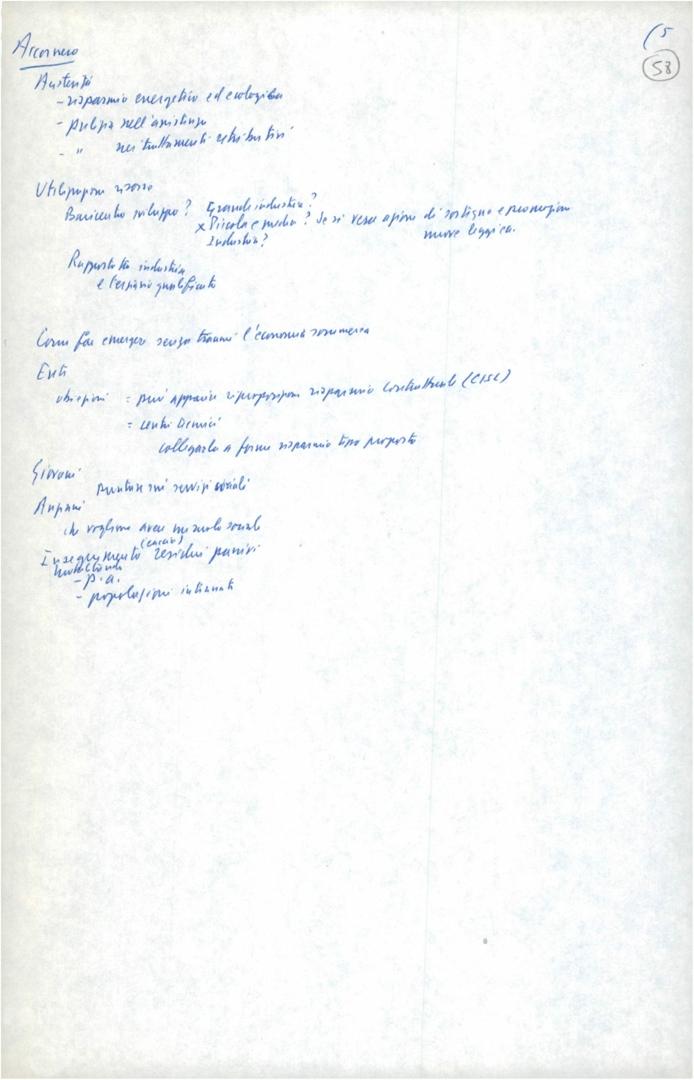 (5
58
Accornero
Austerità
- risparmio energetico ed ecologico
- pulizia nell'assistenza
- " nei trattamenti retributivi
Utilizzazione risorse
Baricentro sviluppo? Grande industria?
x Piccola e media? Se si verso azione di sostegno e promozione
Industria? nuove leggi
Rapporto tra industria
e terziario qualificato
Come far emergere senza traumi l'economia sommersa
Enti
obiezioni = può apparire riproposizione risparmio contrattuale (CISL)
=
collegarla a forme risparmio tipo proposto
Giovani
puntare sui servizi sociali
Anziani
che vogliono avere un ruolo sociale
Inseguimento residui passivi
- p.a.
- popolazioni